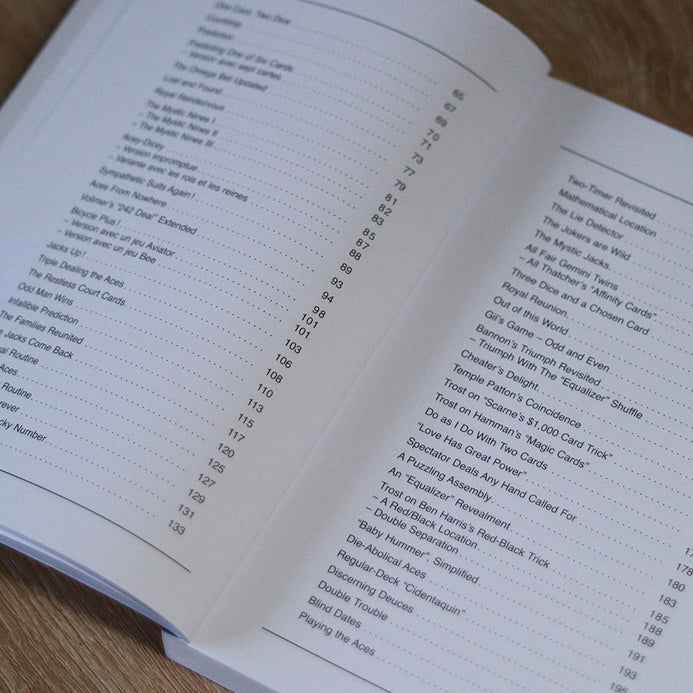 One Card, Two Dice 65
67
Prediction 69
Predicting One of Six Cards 70
– Version avec sept cartes 71
The Omega Bet Updated 73
Lost and Found 77
Royal Rendezvous 79
The Mystic Nines I 81
– The Mystic Nines II 82
– The Mystic Nines III 83
Acey-Dicey 85
– Version impromptue 87
– Variante avec les rois et les reines 88
Sympathetic Suits Again ! 89
Aces From Nowhere 93
Vollmer's “242 Deal” Extended 94
Bicycle Plus ! 98
– Version avec un jeu Aviator 101
– Version avec un jeu Bee 101
Jacks Up ! 103
Triple Dealing the Aces 106
The Restless Court Cards 108
Odd Man Wins 110
Infallible Prediction 113
The Families Reunited 115
Jacks Come Back 117
Routine 120
Aces 125
Routine 127
129
Number 131
133
Two-Timer Revisited
Mathematical Location
The Lie Detector
The Jokers are Wild
The Mystic Jacks
All Fair Gemini Twins
– All Thatcher's “Affinity Cards”
Three Dice and a Chosen Card
Royal Reunion
Out of this World
Gil's Game – Odd and Even
Bannon's Triumph Revisited
– Triumph With The “Equalizer” Shuffle
Cheater's Delight
Temple Patton's Coincidence
Trost on “Scarne's $1,000 Card Trick”
Trost on Hamman's “Magic Cards”
Do as I Do With Two Cards
“Love Has Great Power”
Spectator Deals Any Hand Called For
A Puzzling Assembly
An “Equalizer” Revealment
Trost on Ben Harris's Red-Black Trick
– A Red/Black Location
– Double Separation
“Baby Hummer” Simplified
Die-Abolical Aces
Regular-Deck “Cidentaquin”
Discerning Deuces
Double Trouble
Blind Dates
Playing the Aces
178
180
183
185
188
189
191
193